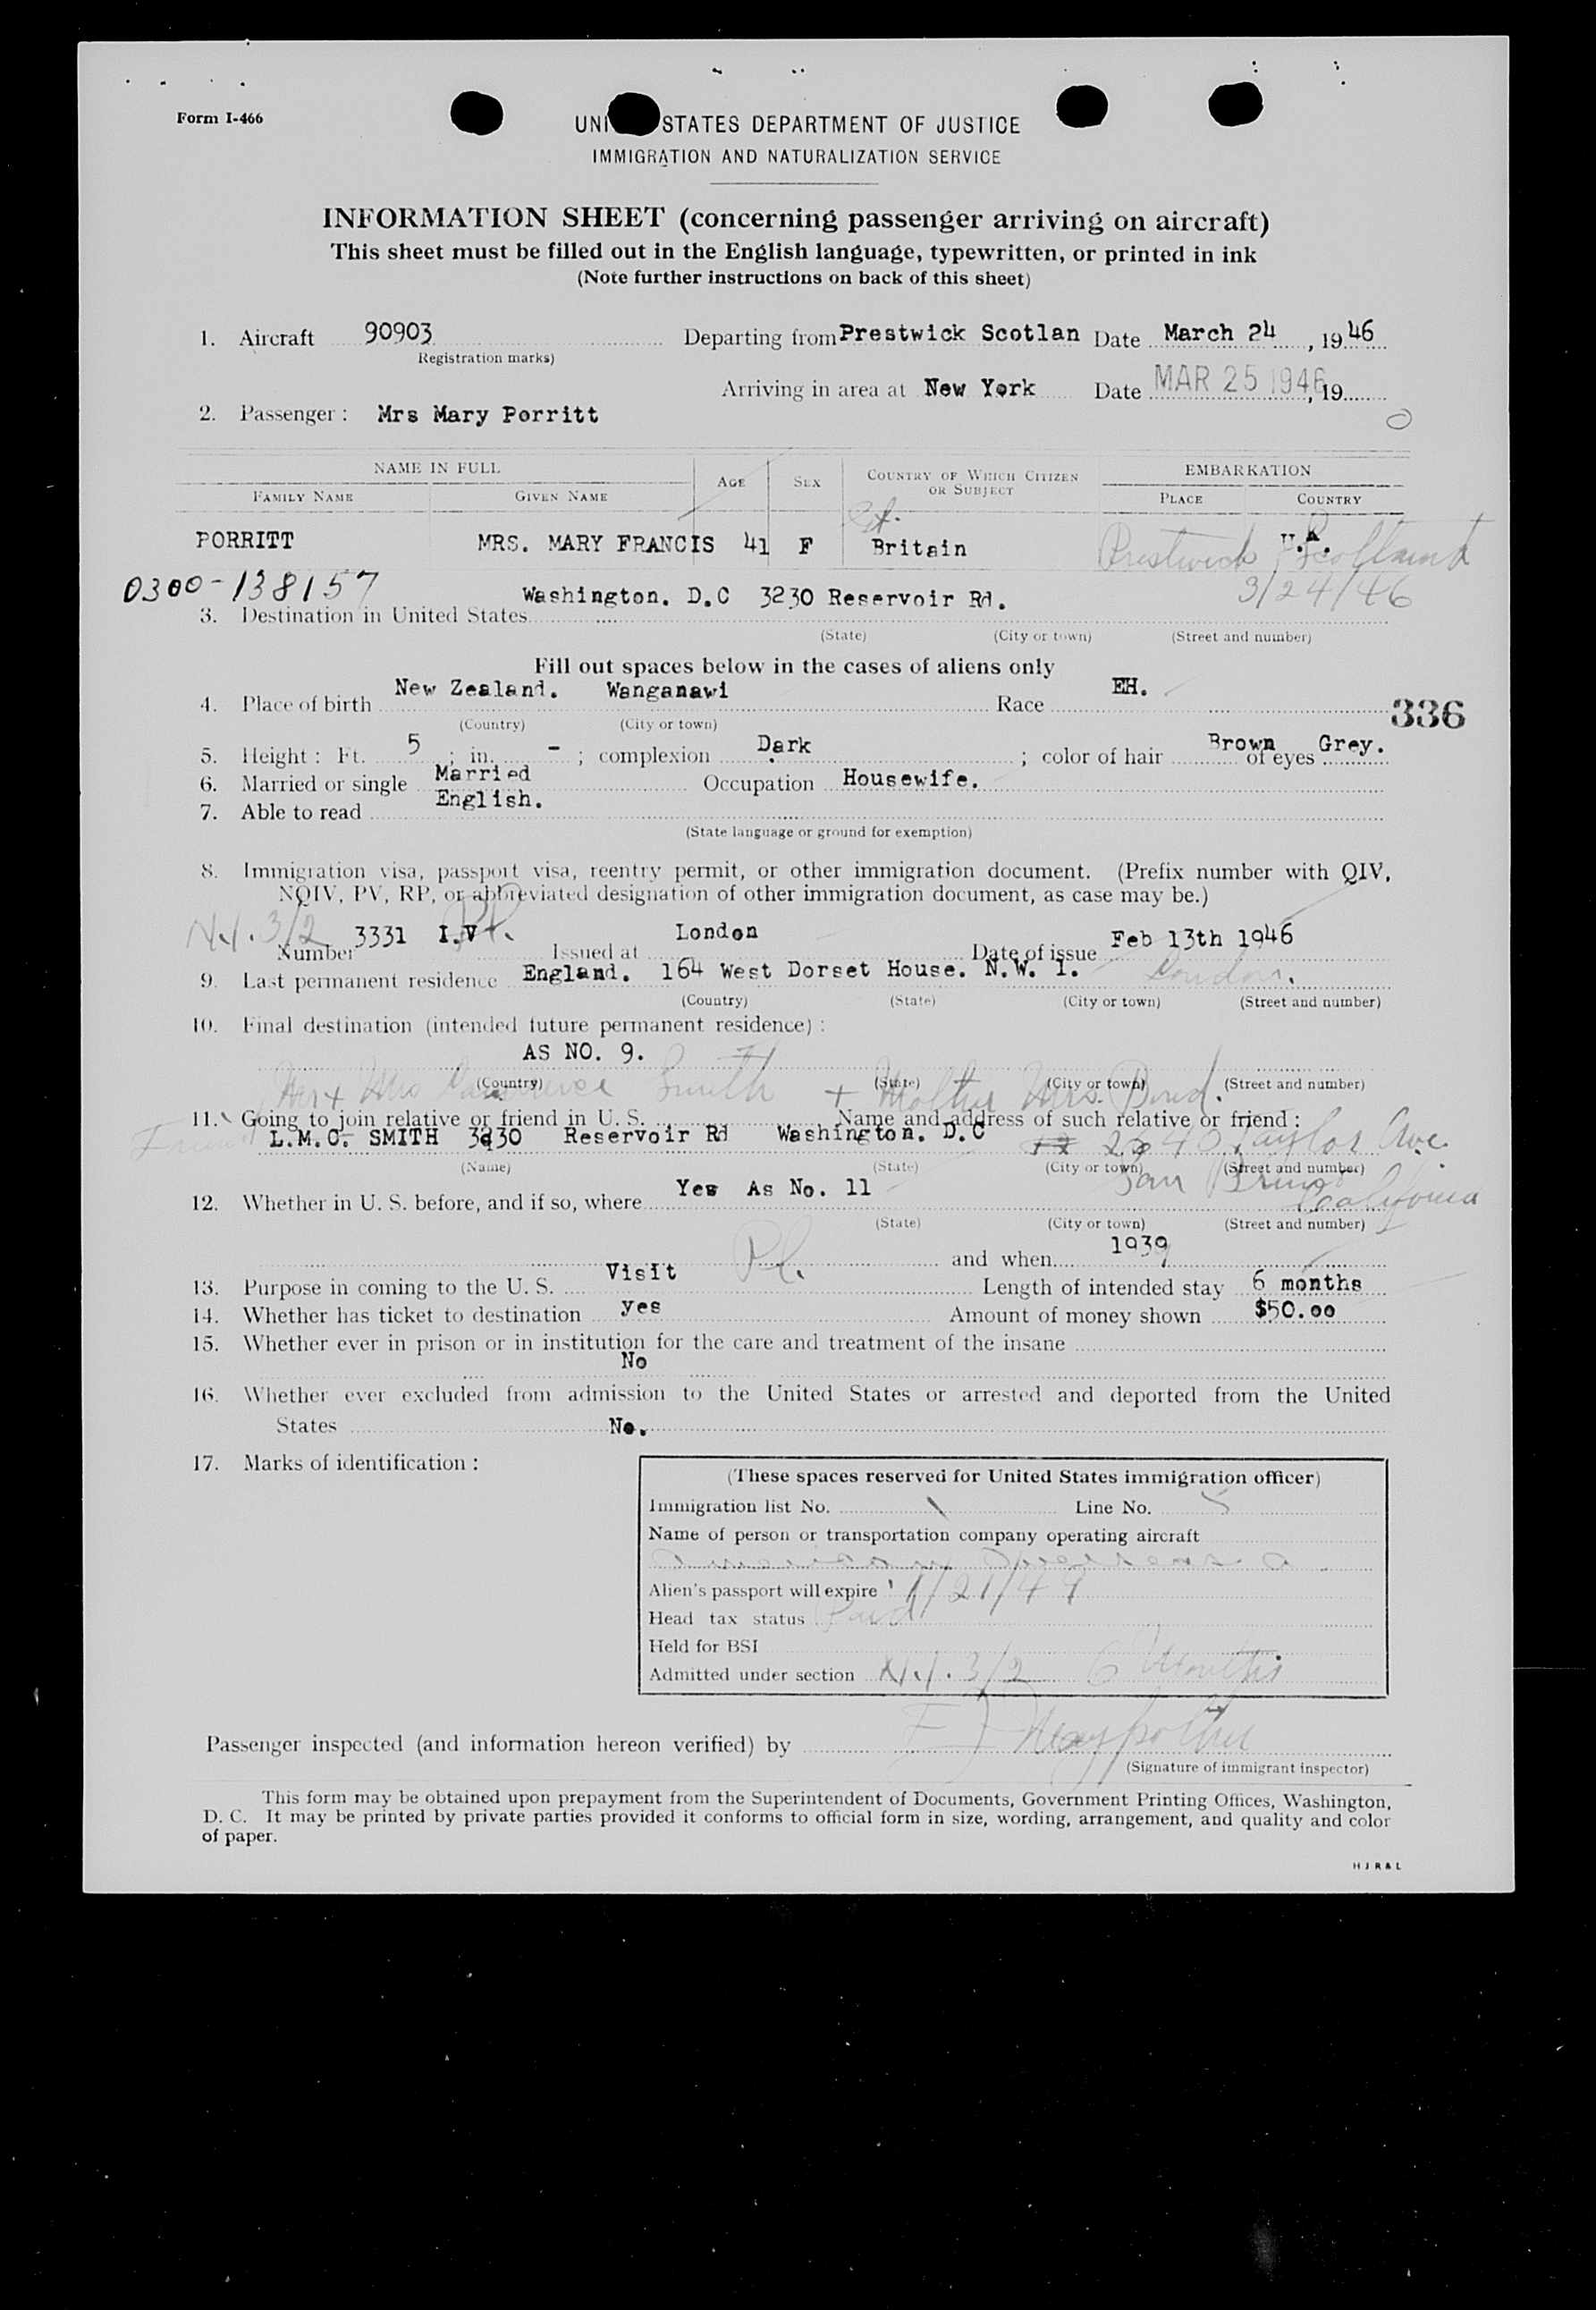 Form I-466
UNI STATES DEPARTMENT OF JUSTICE
IMMIGRATION AND NATURALIZATION SERVICE
INFORMATION SHEET (concerning passenger arriving on aircraft)
This sheet must be filled out in the English language, typewritten, or printed in ink
(Note further instructions on back of this sheet)
1. Aircraft 90903 Departing from Prestwick Scotlan Date March 24, 1946
(Registration marks)
Arriving in area at New York Date MAR 25 1946, 19
2. Passenger: Mrs Mary Porritt
NAME IN FULL AGE SEX COUNTRY OF WHICH CITIZEN OR SUBJECT EMBARKATION
FAMILY NAME GIVEN NAME PLACE COUNTRY
PORRITT MRS. MARY FRANCIS 41 F Britain Prestwick Scotland U.K.
0300-138157 3/24/46
Washington. D.C 3230 Reservoir Rd.
3. Destination in United States
(State) (City or town) (Street and number)
Fill out spaces below in the cases of aliens only
4. Place of birth New Zealand. Wanganawi Race EH.
336
(Country) (City or town)
5. Height: Ft. 5; in. -; complexion Dark; color of hair Brown of eyes Grey.
6. Married or single Married Occupation Housewife.
7. Able to read English.
(State language or ground for exemption)
8. Immigration visa, passport visa, reentry permit, or other immigration document. (Prefix number with QIV,
NQIV, PV, RP, or abbreviated designation of other immigration document, as case may be.)
3/2 Number 3331 I.V. Issued at London Date of issue Feb 13th 1946
9. Last permanent residence England. 164 West Dorset House. N.W. 1. London.
(Country) (State) (City or town) (Street and number)
10. Final destination (intended future permanent residence):
AS NO. 9.
(Country) (State) (City or town) (Street and number)
Mr + Mrs Smith + Mother Mrs. Bond.
11. Going to join relative or friend in U. S. Name and address of such relative or friend:
L.M.C. SMITH 3230 Reservoir Rd Washington. D.C Taylor Ave.
(Name) (State) (City or town) (Street and number)
San Bruno California
12. Whether in U. S. before, and if so, where Yes As No. 11
(State) (City or town) (Street and number)
and when 1939
13. Purpose in coming to the U. S. Visit Length of intended stay 6 months
14. Whether has ticket to destination yes Amount of money shown $50.00
15. Whether ever in prison or in institution for the care and treatment of the insane
No
16. Whether ever excluded from admission to the United States or arrested and deported from the United
States No.
17. Marks of identification:
(These spaces reserved for United States immigration officer)
Immigration list No. 1 Line No. 5
Name of person or transportation company operating aircraft
Alien's passport will expire 1/21/49
Head tax status Paid
Held for BSI
Admitted under section 3/2 6 Months
Passenger inspected (and information hereon verified) by
(Signature of immigrant inspector)
This form may be obtained upon prepayment from the Superintendent of Documents, Government Printing Offices, Washington,
D. C. It may be printed by private parties provided it conforms to official form in size, wording, arrangement, and quality and color
of paper.
H J R & L